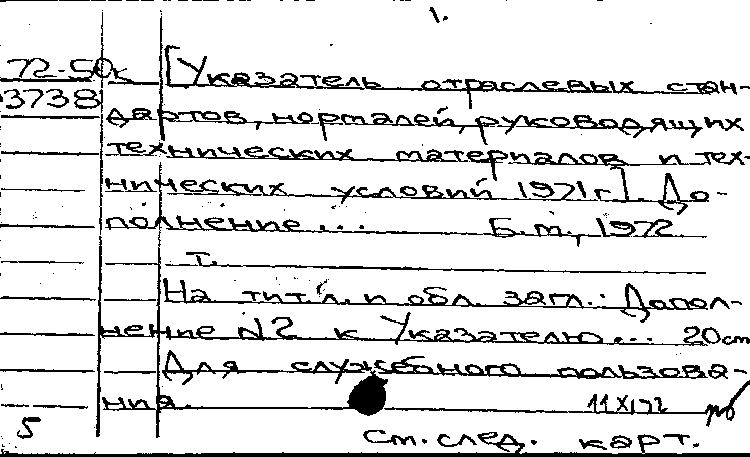 1.
72-50к [Указатель отраслевых стан-
3738 дартов, нормалей, руководящих
технических материалов и тех-
нических условий 1971 г.]. До-
полнение... Б.м., 1972.
т.
На тит. л. и обл. загл.: Допол-
нение № 2 к Указателю... 20 см
Для служебного пользова-
ния. 11 XI 72
5 См. след. карт.